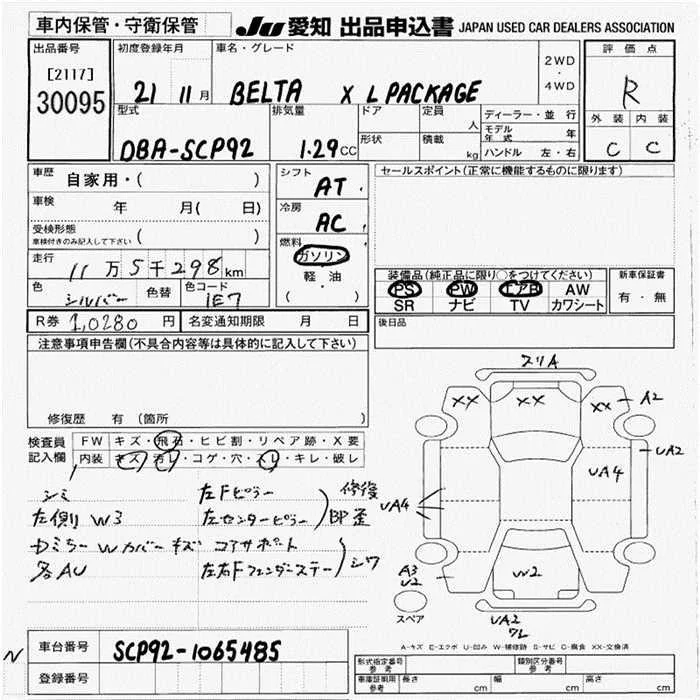 車内保管・守衛保管
JU 愛知 出品申込書 JAPAN USED CAR DEALERS ASSOCIATION
出品番号
[2117]
30095
初度登録年月
21 11月
車名・グレード
BELTA X L PACKAGE
2WD
・
4WD
評価点
R
外装 内装
C C
型式
DBA-SCP92
排気量
1.29CC
ドア
形状
定員
人
積載
kg
ディーラー・並行
モデル年式 年
ハンドル 左・右
車歴
自家用・( )
車検
年 月( 日)
受検形態
車検付きのみ記入して下さい ( )
走行
11万5千298km
色
シルバー
色替
色コード
1E7
シフト
AT
冷房
AC
燃料
ガソリン
・
軽・油
( ・ )
セールスポイント(正常に機能するものに限ります)
装備品(純正品に限り○をつけてください)
PS PW エアB AW
SR ナビ TV カワシート
新車保証書
有・無
後日品
R券 1,0280円
名変通知期限 月 日
注意事項申告欄(不具合内容等は具体的に記入して下さい)
修復歴 有(箇所 )
検査員
記入欄
FW キズ・飛石・ヒビ割・リペア跡・X要
内装 キズ・汚レ・コゲ・穴・スレ・キレ・破レ
シミ
左側リ W3
各AU
左Fピラー
左センターピラー
修復
コアサポート
左右Fフェンダーステー
シワ
スリA
XX
XX
XX
A2
UA2
UA4
UA4
A3
U2
W2
UA2
ワレ
スペア
A-キズ E-エクボ U-凹み W-補修跡 S-サビ C-腐食 XX-交換済
N
車台番号
SCP92-1065485
登録番号
形式指定番号
参考
類別区分番号
参考
車庫証明用
参考
長さ cm 幅 cm 高さ cm